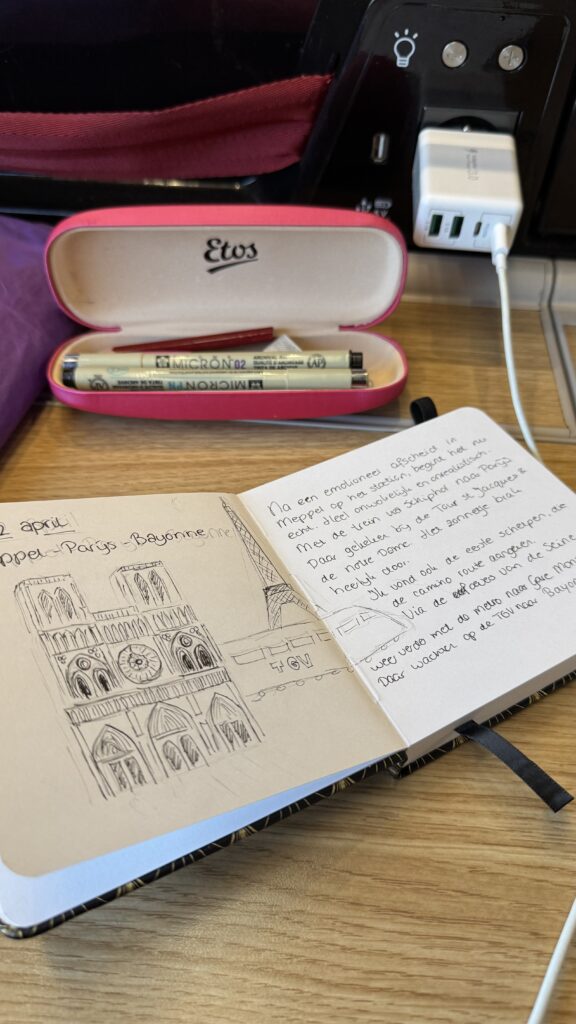 Etos
MICRON 02
MICRON
2 april
ppel - Parijs - Bayonne
TGV
Na een emotioneel afscheid in
Meppel op het station, begint het nu
echt. Heel onwerkelijk en onrealistisch.
Met de trein via Schiphol naar Parijs
Daar gekeken bij de Tour st Jacques &
de Notre Dame. Het zonnetje brak
heerlijk door.
Ik vond ook de eerste schelpen die
de camino route aangeven.
Via de oevers van de Seine
weer verder met de metro naar Gare Mon
Daar wachten op de TGV naar Bayon